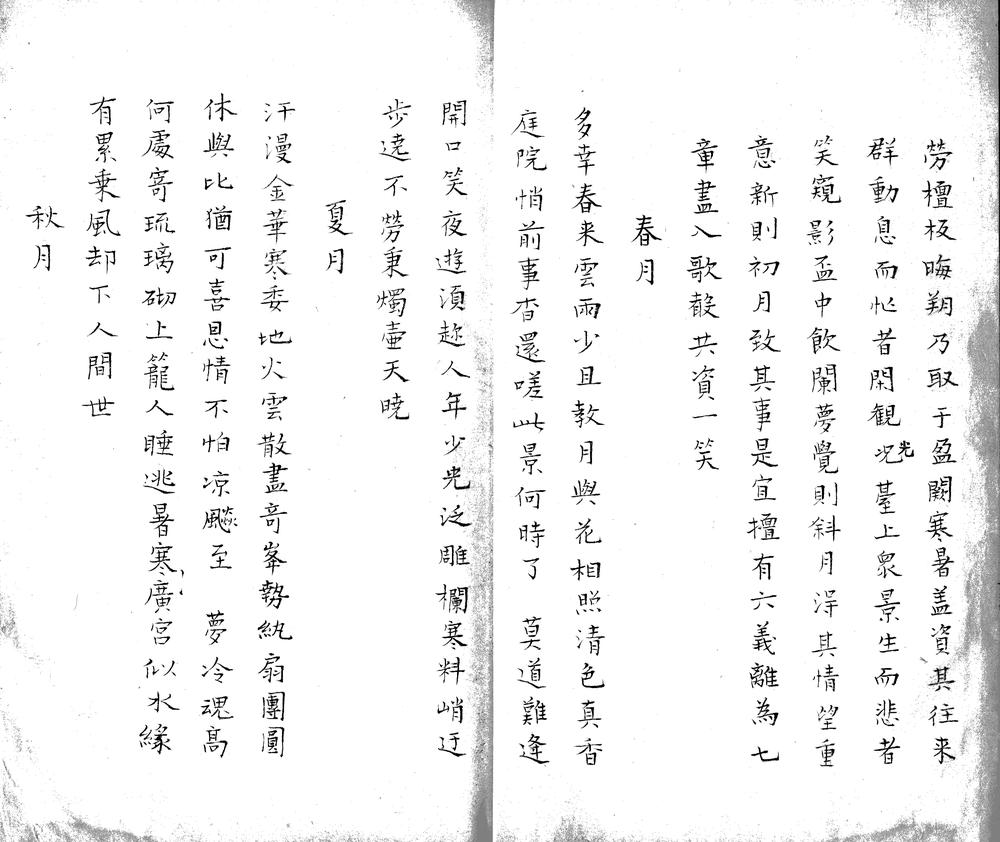 勞檀板晦朔乃取于盈闕寒暑盖資其往来
群動息而忙者閑觀光况䑓上衆景生而悲者
笑窺影盃中飲闌夢覺則斜月淂其情望重
意新則初月致其事是宜擅有六義離為七
章盡入歌皷共資一笑
春月
多幸春来雲雨少且教月與花相照清色真香
庭院悄前事杳還嗟此景何時了 莫道難逢
開口笑夜遊湏趂人年少光泛雕欄寒料峭迂
步遶不勞秉燭壷天曉
夏月
汗漫金華寒委地火雲散盡竒峯勢紈扇團圓
休與比猶可喜恩情不怕凉飈至 夢冷魂髙
何處寄琉璃砌上籠人睡逃暑寒廣宮似水緣
有累乗風却下人間世
秋月